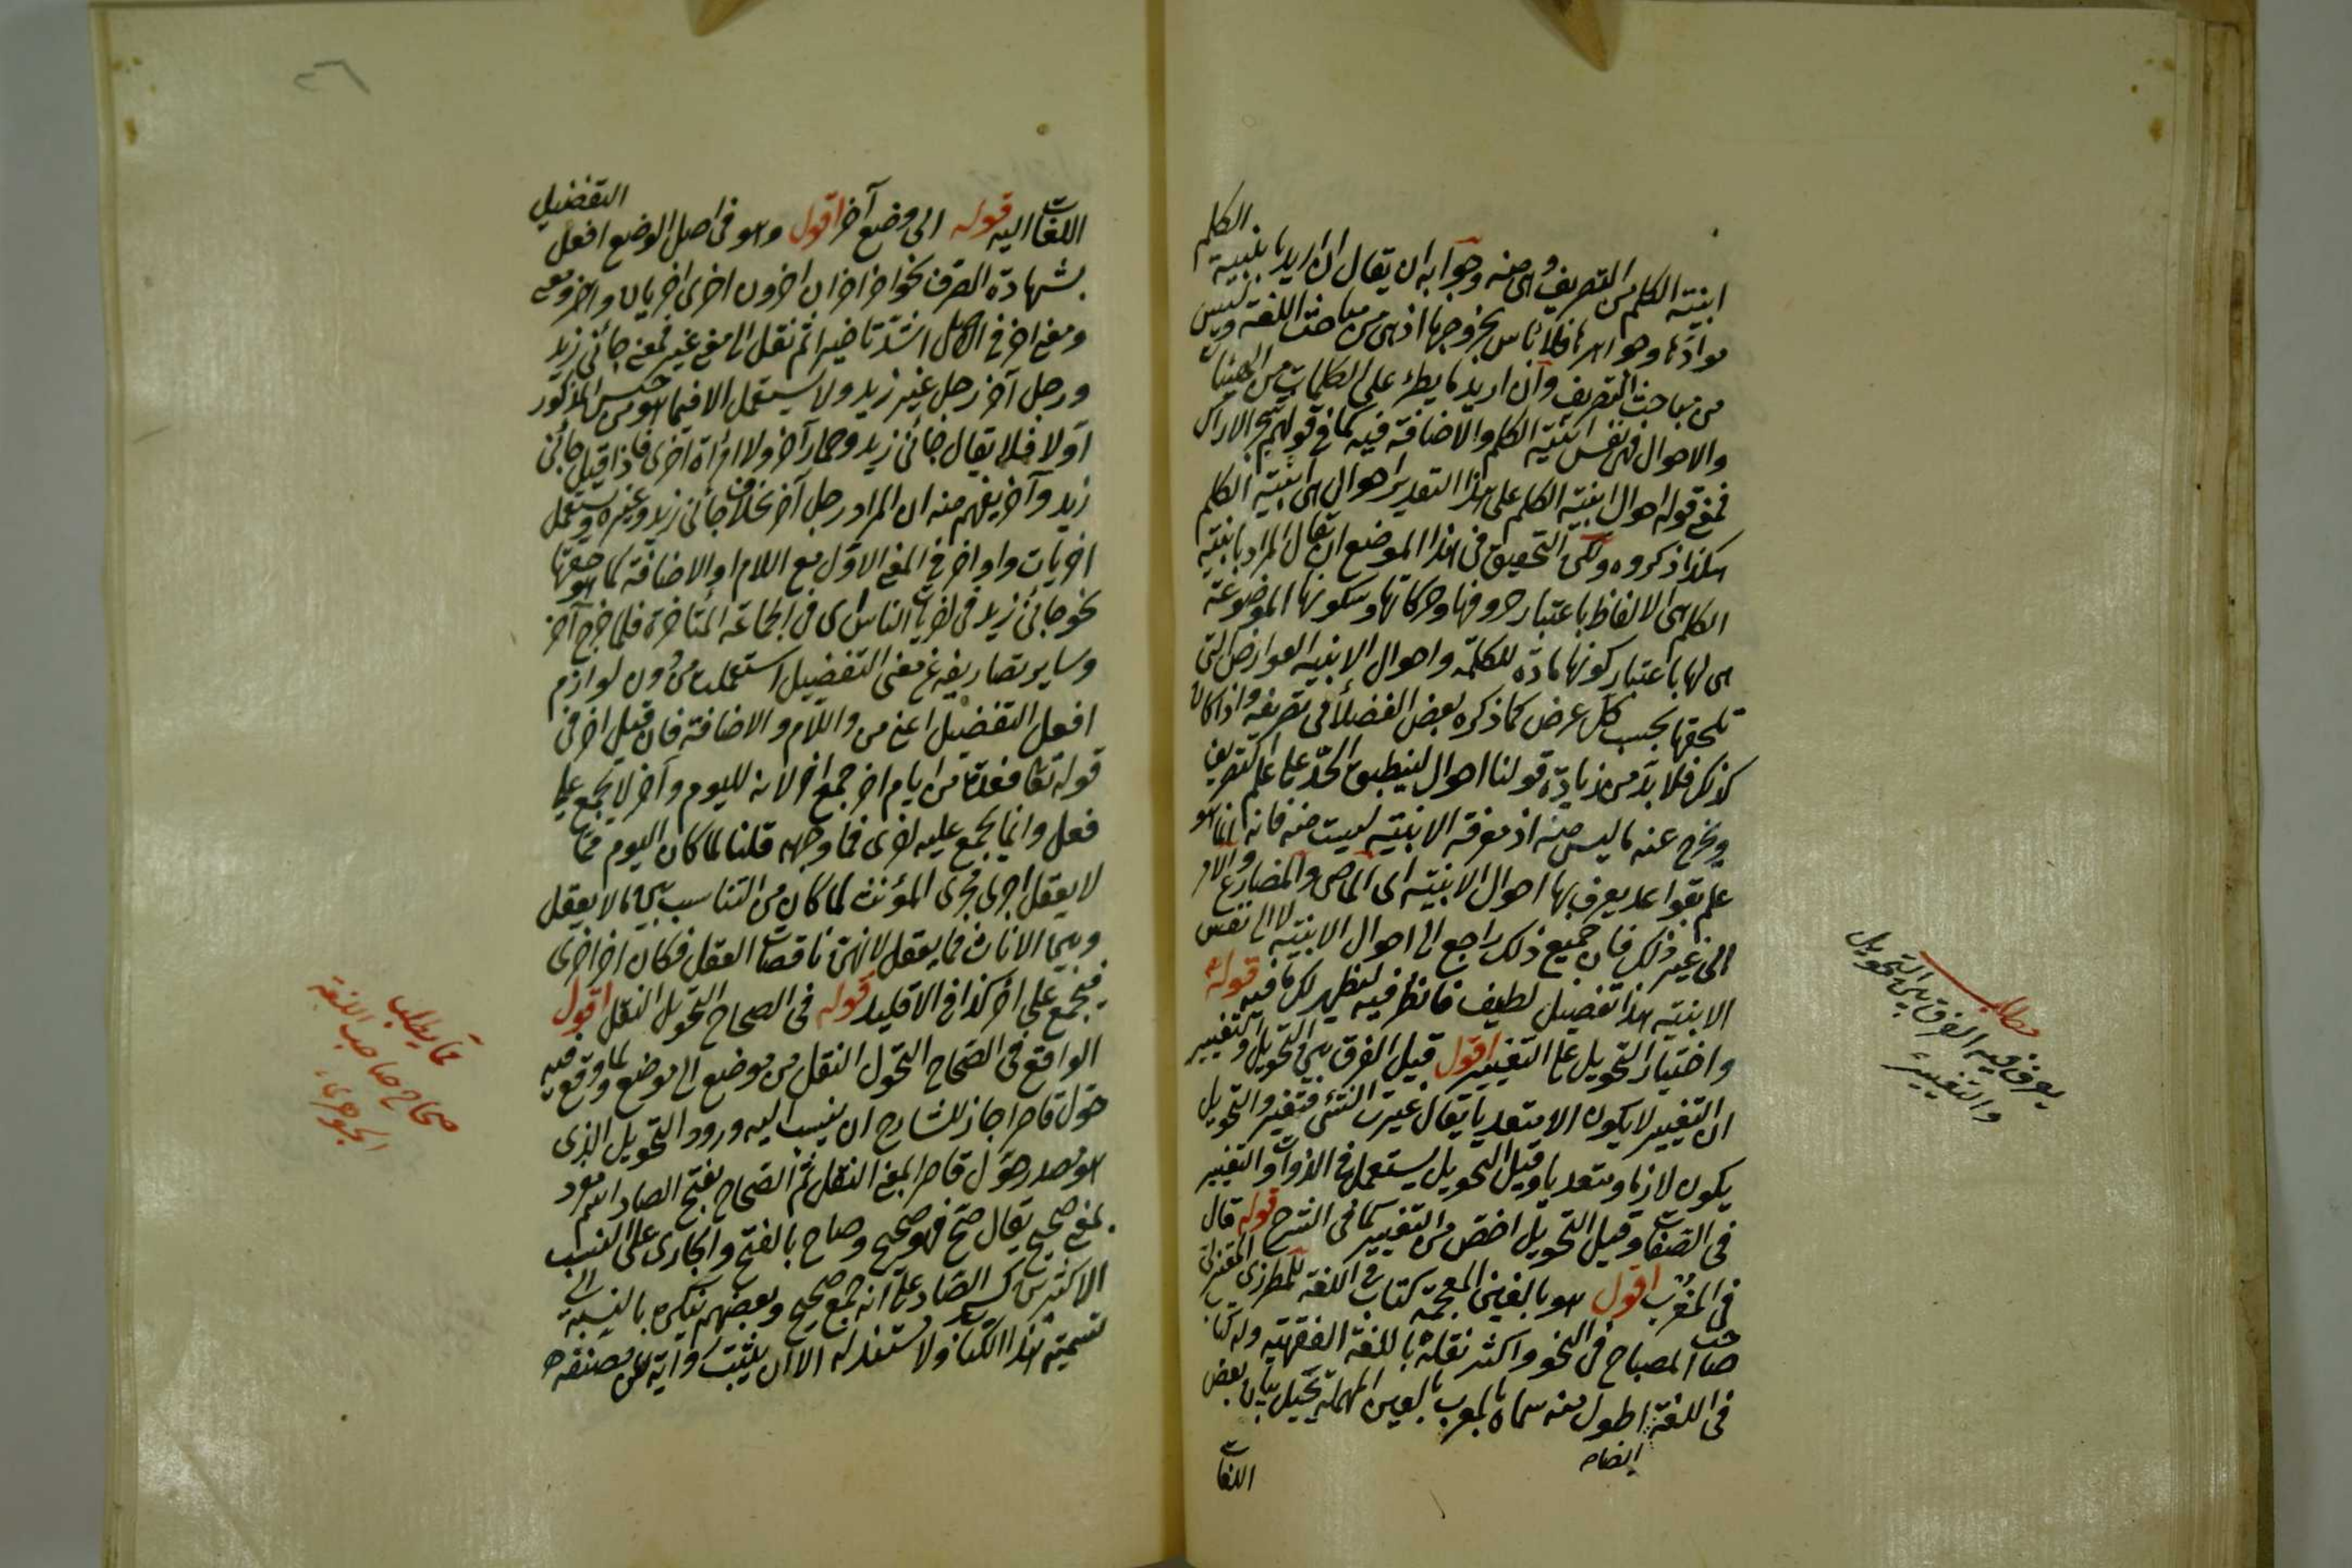 ابنية الكلم من التصريف وهى منه وجوابه ان يقال ان اريد بابنية الكلم
موادّها وجواهرها فلا بأس بخروجها اذ هى من مباحث اللغة وليس
من مباحث التصريف وان اريد ما يطرء على الكلمات من الهيئات
والاحوال فهى نفس ابنية الكلم والاضافة فيه كما فى قولهم شجر الاراك
فمعنى قوله احوال ابنية الكلم على هذا التقدير احوال هى ابنية الكلم
هكذا ذكروه ولكن التحقيق فى هذا الموضع ان يقال المراد بابنية
الكلم هى الالفاظ باعتبار حروفها وحركاتها وسكونها الموضوعة
هى لها باعتبار كونها مادّة للكلمة واحوال الابنية العوارض التى
تلحقها بحسب كل غرض كما ذكره بعض الفضلاء فى تصريفه واذا كان
كذلك فلا بدّ من زيادة قولنا احوال لينطبق الحدّ على علم التصريف
ويخرج عنه ما ليس منه اذ معرفة الابنية ليست منه فانه انما هو
علم بقواعد يعرف بها احوال الابنية اى الماضى والمضارع والامر
الى غير ذلك فان جميع ذلك راجع الى احوال الابنية لا الى نفس
الابنية هذا تفصيل لطيف فانظر فيه ليظهر لك ما فيه قوله
واختيار التحويل على التغيير اقول قيل الفرق بين التحويل والتغيير
ان التغيير لا يكون الا متعديا يقال غيرت الشئ فتغير والتحويل
يكون لازما ومتعديا وقيل التحويل يستعمل فى الذوات والتغيير
فى الصفات وقيل التحويل اخصّ من التغيير كما فى الشرح قوله قال
فى المغرب اقول هو بالغين المعجمة كتاب فى اللغة للمطرزى المعتزلى
صاحب المصباح فى النحو واكثر نقله باللغة الفقهية وله كتاب
فى اللغة اطول منه سماه بالمعرب بالعين المهملة بعض
ايضا
اللغات
مطلب
يعرف فيه الفرق بين التحويل
والتغيير
اللغات اليه قوله الى وضع آخر اقول وهو فى اصل الوضع افعل التفضيل
بشهادة الصرف نحو آخر اخران اخرون اخرى اخريان واخر
ومعنى اخر فى الاصل اشدّ تأخيرا ثم نقل الى معنى غير فمعنى جائنى زيد
ورجل آخر رجل غير زيد ولا يستعمل الا فيما هو من جنس المذكور
اوّلا فلا يقال جائنى زيد وحمار آخر ولا امرأة اخرى فاذا قيل جائنى
زيد وآخر يفهم منه ان المراد رجل آخر بخلاف جائنى زيد وغيره ويستعمل
اخريات واواخر فى المعنى الاوّل مع اللام او الاضافة كما هو حقها
نحو جائنى زيد فى اخريات الناس اى فى الجماعة المتأخرة فلما خرج آخر
وساير تصاريفه عن معنى التفضيل استعملت من دون لوازم
افعل التفضيل اعنى من واللام والاضافة فان قيل اخر فى
قوله تعالى فعدة من ايام اخر جمع آخر لانه لليوم وآخر لا يجمع على
فعل وانما يجمع عليه اخرى فما وجهه قلنا لما كان اليوم مما
لا يعقل اجرى مجرى المؤنث لما كان من التناسب بين ما لا يعقل
وبين الاناث مما يعقل لانهن ناقصات العقل فكان آخر اخرى
فيجمع على اخر كذا فى الاقليد قوله فى الصحاح التحويل النقل اقول
الواقع فى الصحاح التحول النقل من موضع الى موضع ولما وقع فيه
حوّل قاصرا جاز للشارح ان ينسب اليه ورود التحويل الذى
هو مصدر حوّل قاصرا بمعنى النقل ثم الصحاح بفتح الصاد اسم مفرد
بمعنى صحيح يقال صحّ فهو صحيح وصحاح بالفتح والجارى على السنة
الاكثرين كسر الصاد على انه جمع صحيح وبعضهم ينكره بالنسبة الى
تسمية هذا الكتاب ولا مستند له الا ان يثبت رواية عن مصنفه
مما يطلب
صحاح صاحب اللغة
الجوهرى